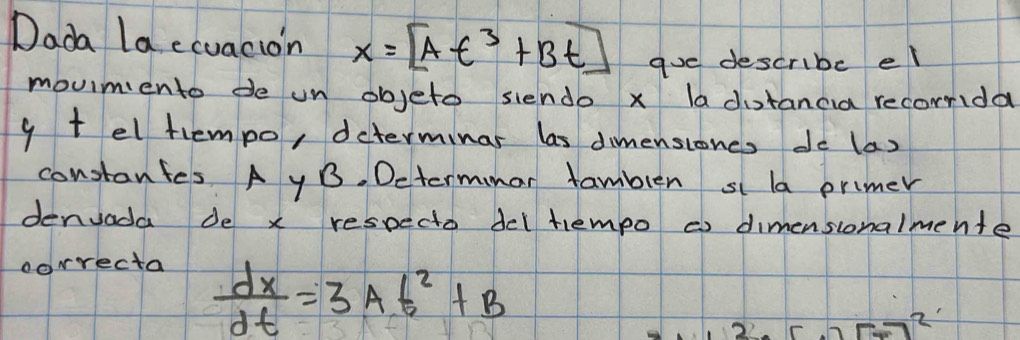 Dada la ecuación x = [At³ + Bt] que describe el
movimiento de un objeto siendo x la distancia recorrida
y t el tiempo, determinar las dimensiones de las
constantes A y B. Determinar tambien si la primer
derivada de x respecto del tiempo es dimensionalmente
correcta
dx/dt = 3At² + B